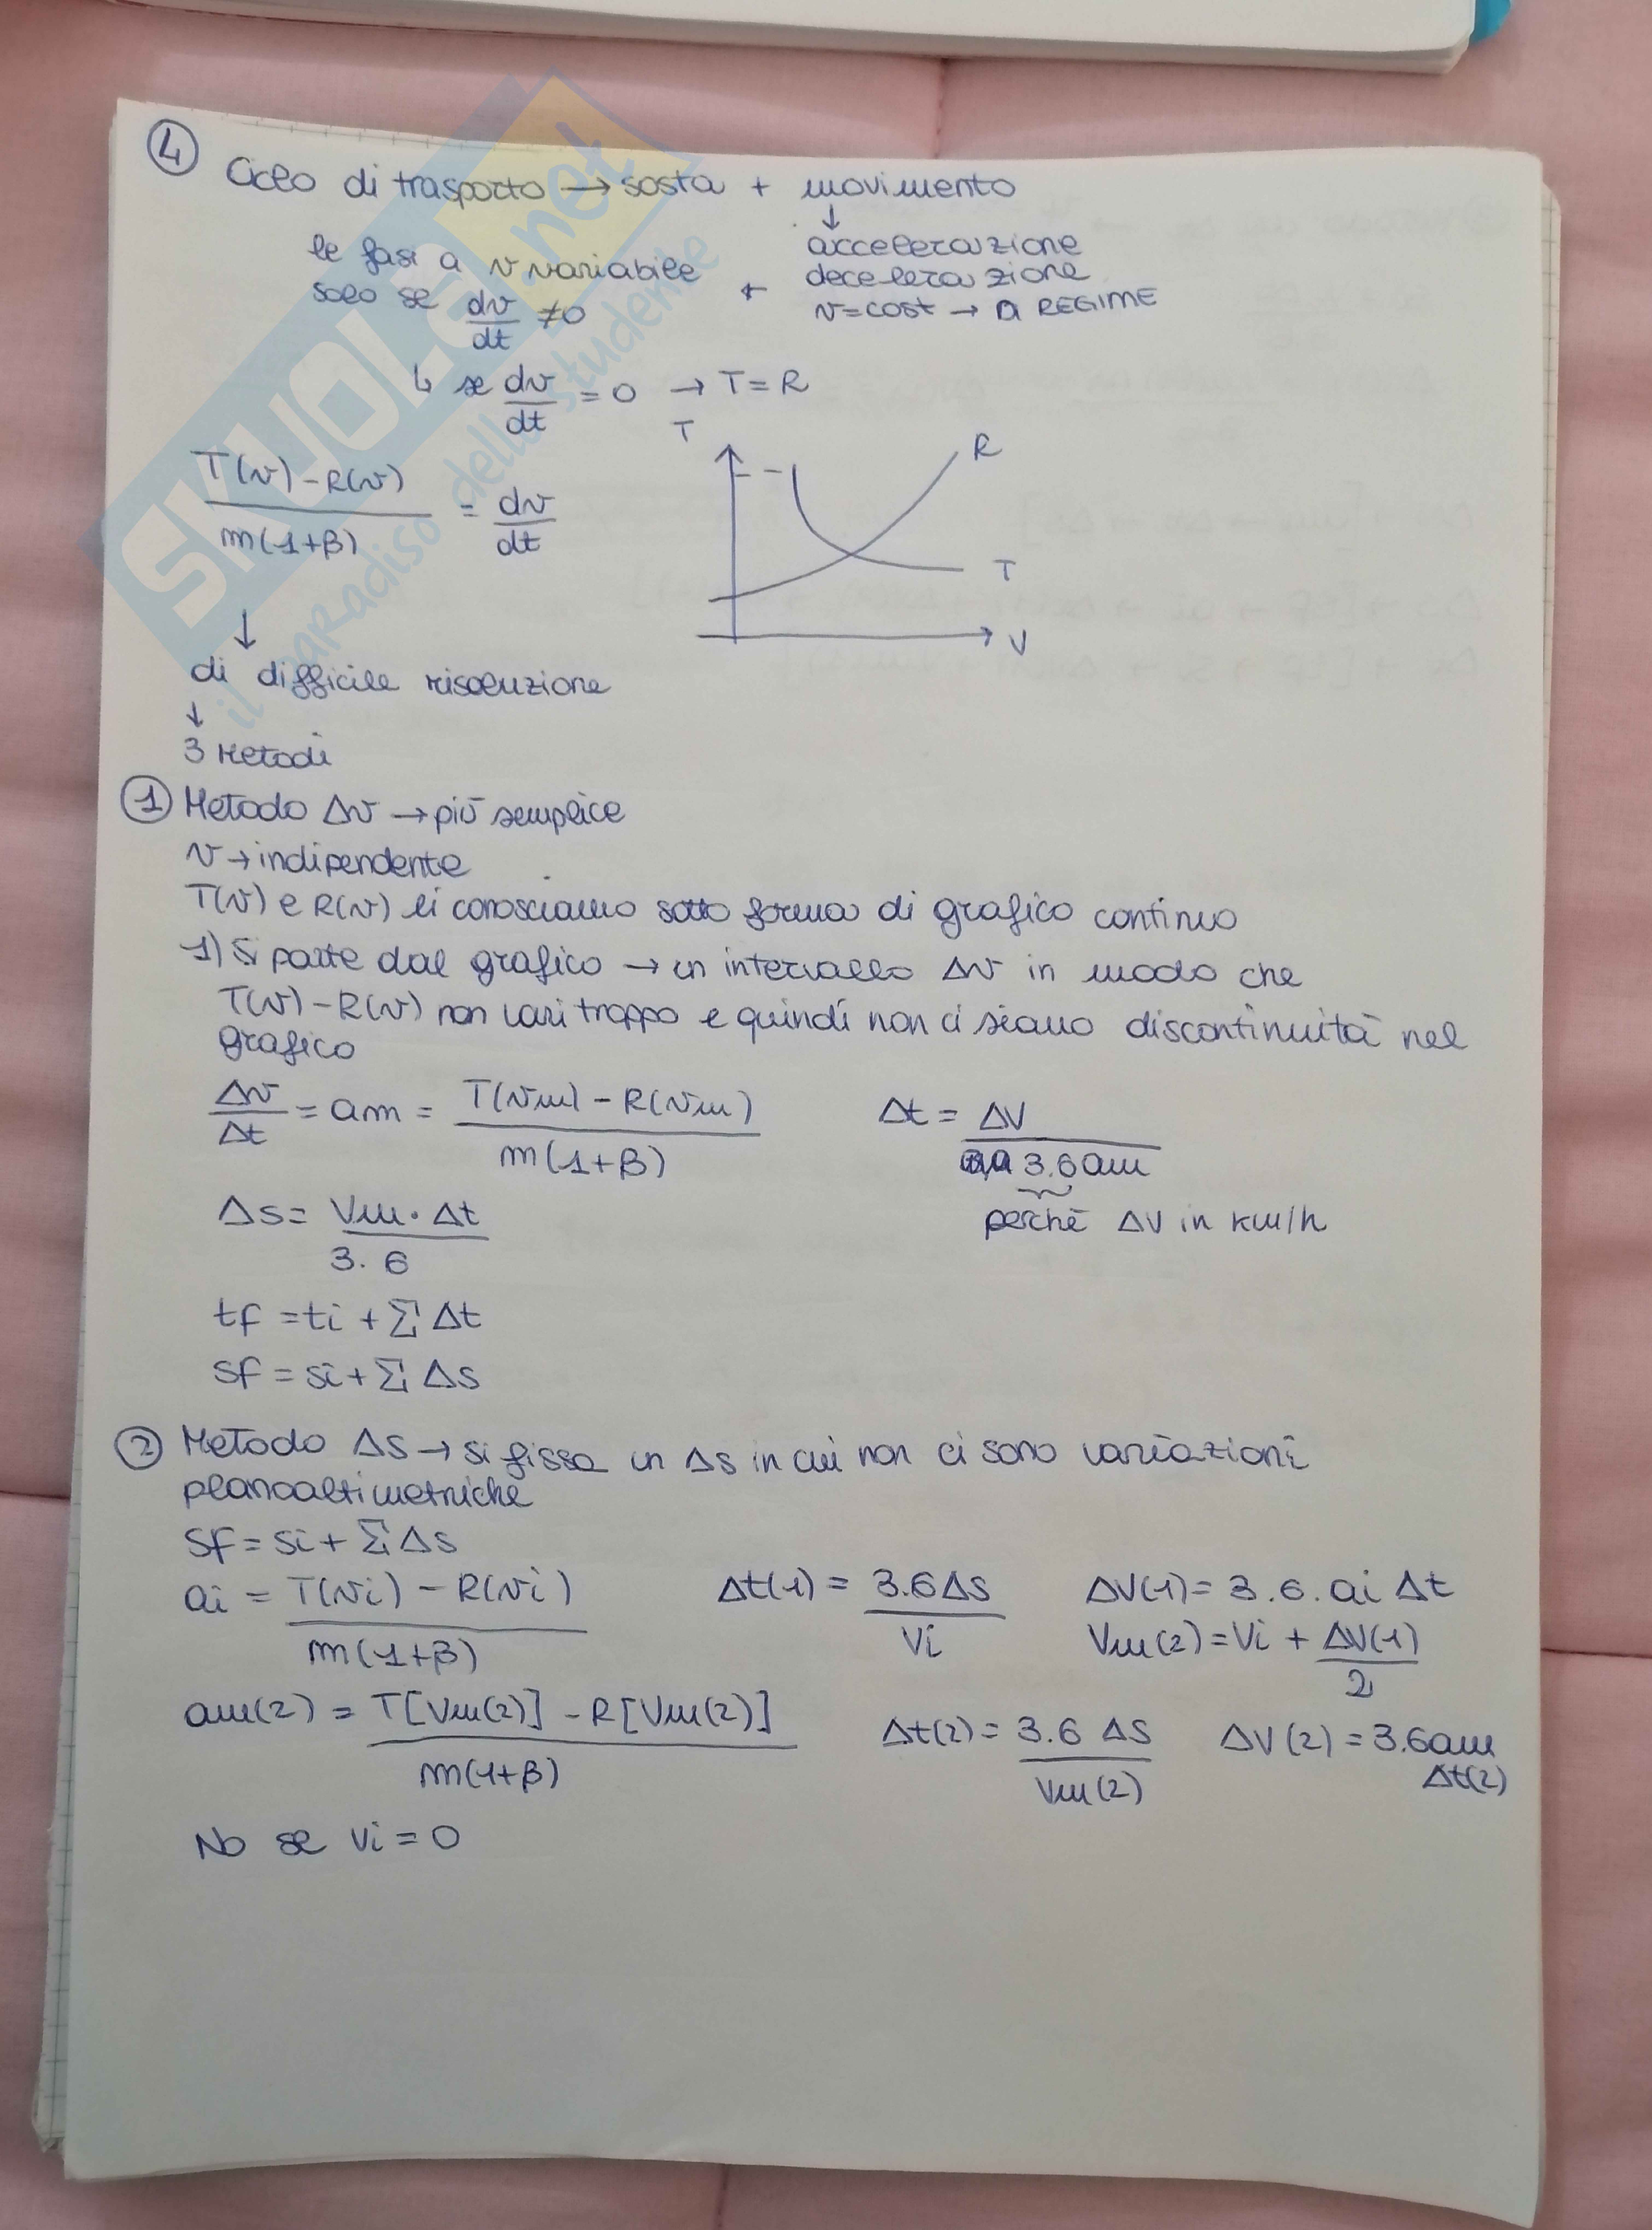 4
Ciclo di trasporto → sosta + movimento
↓
le fasi a v variabile + accelerazione
solo se dv/dt ≠0 decelerazione
v=cost → A REGIME
↳ se dv/dt = 0 → T=R
T
R
T(v)-R(v)/m(1+β) = dv/dt
T
V
↓
di difficile risoluzione
↓
3 Metodi
1 Metodo Δv → più semplice
v → indipendente
T(v) e R(v) li conosciamo sotto forma di grafico continuo
1) Si parte dal grafico → un intervallo Δv in modo che
T(v)-R(v) non vari troppo e quindi non ci siano discontinuità nel
grafico
Δv/Δt = am = T(vm)-R(vm)/m(1+β) Δt = ΔV/3.6am
perchè ΔV in km/h
Δs = Vm·Δt/3.6
tf = ti + Σ Δt
sf = si + Σ Δs
2 Metodo Δs → si fissa un Δs in cui non ci sono variazioni
planoaltimetriche
sf = si + Σ Δs
ai = T(vi) - R(vi)/m(1+β) Δt(1) = 3.6Δs/Vi ΔV(1) = 3.6.ai Δt
Vm(2) = Vi + ΔV(1)/2
am(2) = T[Vm(2)] - R[Vm(2)]/m(1+β) Δt(2) = 3.6 Δs/Vm(2) ΔV(2) = 3.6am
Δt(2)
No se vi = 0
SKUOLA.net
il paradiso dello studente